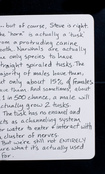 ...but of course, Steve is right
the "horn" is actually a tusk
from a protruding canine
tooth. Narwhals are actually
the only species to have
straight spiraled tusks. The
majority of males have them,
but only about 15% of females
have them. And sometimes, about
1 in 500 chance, a male will
actually grow 2 tusks.
The tusk has no enamel and
acts as a channeling system
for water to enter & interact with
a cluster of nerves.
But we're still not entirely
sure what it's actually used
for.